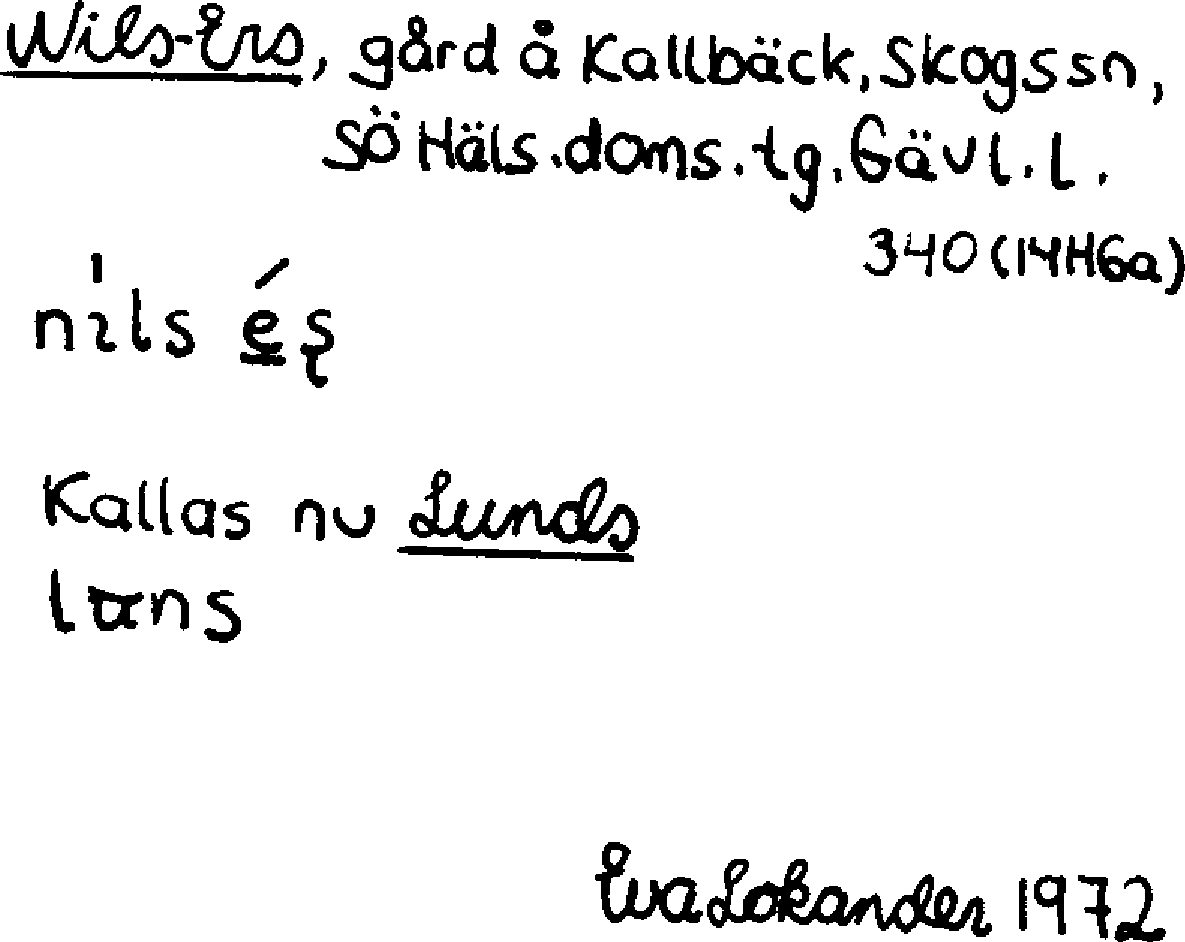 Nils-Ers, gård å Kallbäck, Skogs sn,
SÖ Häls. doms. tg. Gävl. l.
340 (14H6a)
Kallas nu Lunds
Eva Lokander 1972